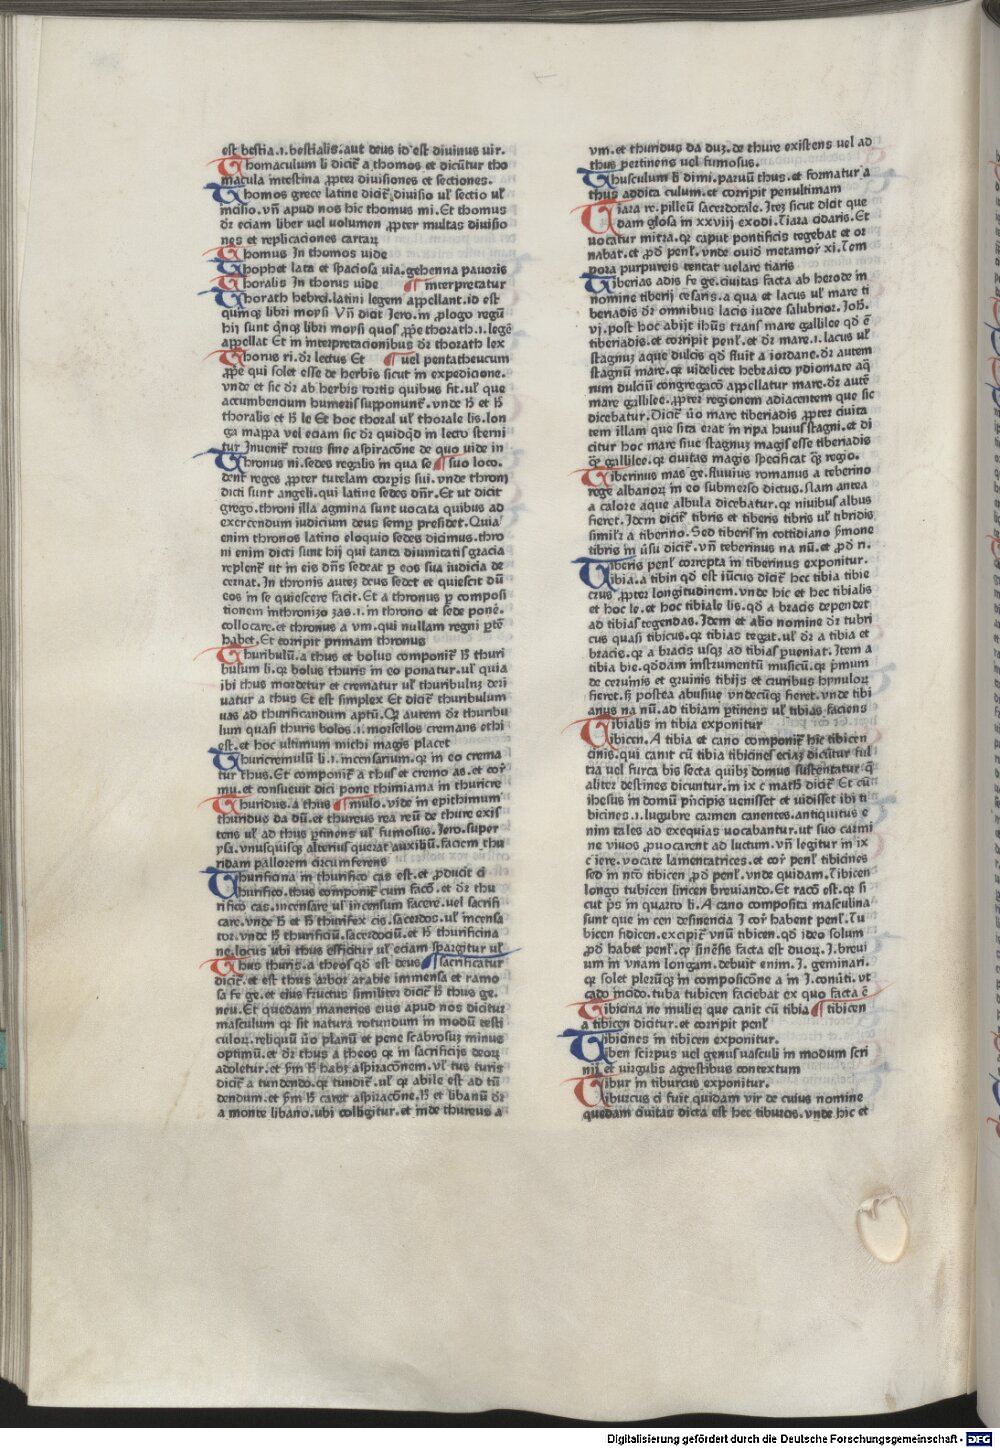 est bestia.i.bestialis.aut deus id est diuinus uir.
Thomaculum li dicit᷑ a thomos et dicũtur tho
macula intestina ꝓpter diuisiones et sectiones.
Thomos grece latine dicit᷑ diuisio ul' sectio ul'
incisio.vñ apud nos hic thomus mi.Et thomus
dr̄ eciam liber uel uolumen ꝓpter multas diuisio
nes et replicaciones cartaꝝ
Thomus In thomos uide
Thophet lata et spaciosa uia.gehenna pauoris
Thoralis In thorus uide ¶ interpretatur
Thorath hebrei.latini legem appellant.id est
quīqꝫ libri moysi Vñ dicit Jero.in ꝓlogo regū
hij sunt qnqꝫ libri moysi quos ꝓpe thorath.i.legē
appellat Et in interpretacionibus dr̄ thorath lex
Thorus ri.dr̄ lectus Et ¶ uel pentatheucum
ꝓpe qui solet esse de herbis sicut in expedicione.
vnde et sic dr̄ ab herbis tortis quibus fit.ul' que
accumbencium humeris supponunt᷑.vnde h̄ et h̄
thoralis et h̄ le Et hoc thoral ul' thorale lis.lon
ga mappa vel eciam sic dr̄ quidqd in lecto sterni
tur Inuenit᷑ torus sine aspiracōne de quo uide in
Thronus ni.sedes regalis in qua se ¶ suo loco.
dent reges ꝓpter tutelam corpis sui.vnde thronj
dicti sunt angeli.qui latine sedes dn̄r.Et ut dicit
grego.throni illa agmina sunt uocata quibus ad
exercendum iudicium deus semp presidet.Quia
enim thronos latino eloquio sedes dicimus.thro
ni enim dicti sunt hij qui tanta diuinitatis gracia
replent᷑ ut in eis dn̄s sedeat ꝑ eos sua iudicia de
cernat.In thronis autez deus sedet et quiescit dū
eos in se quiescere facit.Et a thronus ꝑ composi
tionem inthronizo zas.i.in throno et sede ponē.
collocare.et thronus a vm.qui nullam regni ꝑtē
habet.Et corripit primam thronus
Thuribulū.a thus et bolus componit᷑ h̄ thuri
bulum li.qꝛ bolus thuris in eo ponatur.ul' quia
ibi thus mordetur et crematur ul' thuribulnꝫ deri
uatur a thus Et est simplex Et dicit᷑ thuribulum
uas ad thurificandum aptū.Qꝛ autem dr̄ thuribu
lum quasi thuris bolos.i.morsellos cremans ethi
est.et hoc ultimum michi magis placet
Thuricremulū li.i.incensarium.qꝛ in eo crema
tur thus.Et componit᷑ a thus et cremo as.et cor̄
mu.et consueuit dici pone thimiama in thuricre
Thuridus.a thus ¶ mulo.vide in epithimum
thuridus da dū.et thureus rea reū de thure exis
tens ul' ad thus ꝑtinens ul' fumosus.Jero.super
ysa.vnusquisqꝫ alterius querat auxiliū.faciem thu
ridam pallorem circumferens
Thurificina in thurifico cas est.et ꝓducit ci
Thurifico.thus component᷑ cum facō.et dr̄ thu
rifico cas.incensare ul' incensum facere.uel sacrifi
care.vnde h̄ et h̄ thurifex cis.sacerdos.ul' incensa
tor.vnde h̄ thurificiū.sacerdociū.et h̄ thurificina
ne.locus ubi thus efficitur ul' eciam spargitur ul'
Thus thuris.a theos qd est deus ¶ sacrificatur
dicit᷑.et est thus arbor arabie immensa et ramo
sa fe ge.et eius fructus similiter dicit᷑ h̄ thus ge.
neu.Et quedam maneries eius apud nos dicitur
masculum qꝛ sit natura rotundum in modū testi
culoꝝ.reliquū ůo planū et pene scabrosuꝫ minus
optimū.et dr̄ thus a theos qꝛ in sacrificijs deoꝝ
adoletur.et ẜm h̄ habꝫ aspiracōnem.Vl' tus turis
dicit᷑ a tundendo.qꝛ tundit᷑.ul' qꝛ abile est ad tū
dendum.et ẜm h̄ caret aspiracōne.h̄ et libanū dr̄
a monte libano.ubi colligitur.et inde thureus a
vm.et thuridus da duꝫ.de thure existens uel ad
thus pertinens uel fumosus.
Thusculum li dimi.paruū thus.et formatur a
thus addita culum.et corripit penultimam
Tiara re.pilleū sacerdotale.Iteꝫ sicut dicit que
dam glosa in xxviij exodi.Tiara cidaris.Et
uocatur mitra.qꝛ caput pontificis tegebat et or
nabat.et ꝓd penl'.vnde ouid metamor xi.Tem
pora purpureis tentat uelare tiaris
Tiberias adis fe ge.ciuitas facta ab herode in
nomine tiberij cesaris.a qua et lacus ul' mare ti
beriadis dr̄ omnibus lacis iudee salubrior.Joh̄.
vj.post hoc abijt ih̄us trans mare gallilee qd ē
tiberiadis.et corripit penl'.et dr̄ mare.i.lacus ul'
stagnuꝫ aque dulcis qd fluit a iordane.dr̄ autem
stagnū mare.qꝛ uidelicet hebraico ydiomate aq̄
rum dulciū congregacō appellatur mare.dr̄ autē
mare gallilee.ꝓpter regionem adiacentem que sic
dicebatur.Dicit᷑ ůo mare tiberiadis ꝓpter ciuita
tem illam que sita erat in ripa huius stagni.et di
citur hoc mare siue stagnuꝫ magis esse tiberiadis
qꝫ gallilee.qꝛ ciuitas magis specificat qꝫ regio.
Tiberinus mas ge.fluuius romanus a teberino
rege albanoꝝ in eo submerso dictus.Nam antea
a calore aque albula dicebatur.qꝛ niuibus albus
fieret.Idem dicit᷑ tibris et tiberis tibris ul' tibridis
simil'r a tiberino.Sed tiberis in cottidiano ẜmone
tibris in ůsu dicit᷑.vñ teberinus na nū.et ꝓd n.
Tiberis penl' correpta in tiberinus exponitur.
Tibia.a tibin qd est iūcus dicit᷑ hec tibia tibie
crus ꝓpter longitudinem.vnde hic et hec tibialis
et hoc le.et hoc tibiale lis.qd a bracis dependet
ad tibias tegendas.Idem et alio nomine dr̄ tubri
cus quasi tibicus.qꝛ tibias tegat.ul' dr̄ a tibia et
bracis.qꝛ a bracis usqꝫ ad tibias ꝑueniat.Item a
tibia bie.qddam instrumentū musicū.qꝛ pmum
de ceruinis et gruinis tibijs et cruribus hynuloꝝ
fieret.sꝫ postea abusiue vndecūqꝫ fieret.vnde tibi
anus na nū.ad tibiam ꝑtinens ul' tibias faciens
Tibialis in tibia exponitur
Tibicen.A tibia et cano componit᷑ hic tibicen
cinis.qui canit cū tibia tibicines eciaꝫ dicūtur ful
tra uel furca bis secta quibꝫ domus sustentatur q̄
aliter destines dicuntur.in ix c math̄ dicit᷑ Et cū
ihesus in domū pncipis uenisset et uidisset ibi ti
bicines.i.lugubre carmen canentes.antiquitus e
nim tales ad exequias uocabantur.ut suo carmi
ne viuos ꝓuocarent ad luctum.vñ legitur in ix
c iere.vocate lamentatrices.et cor penl' tibicines
sed in nto tibicen ꝓd penl'.vnde quidam.Tibicen
longo tubicen liricen breuiando.Et racō est.qꝛ si
cut ps in quarto li.A cano composita masculina
sunt que in cen desinencia I cor habent penl'.Tu
bicen fidicen.excipit᷑ vnū tibicen.qd ideo solum
ꝓd habet penl'.qꝛ sinēsis facta est duoꝝ.I.breui
um in vnam longam.debuit enim.I.geminari.
qꝛ solet pleruꝫqꝫ in composicōne a in I.cōuti.vt
cado incido.tuba tubicen faciebat ex quo facta ē
Tibicina ne mulier que canit cū tibia ¶ tibicen
a tibicen dicitur.et corripit penl'
Tibicines in tibicen exponitur.
Tiben scirpus uel genus uasculi in modum scri
nij et uirgulis agrestibus contextum
Tibur in tiburcus exponitur.
Tiburcus ci fuit quidam vir de cuius nomine
quedam ciuitas dicta est hec tiburos.vnde hic et
Digitalisierung gefördert durch die Deutsche Forschungsgemeinschaft - DFG